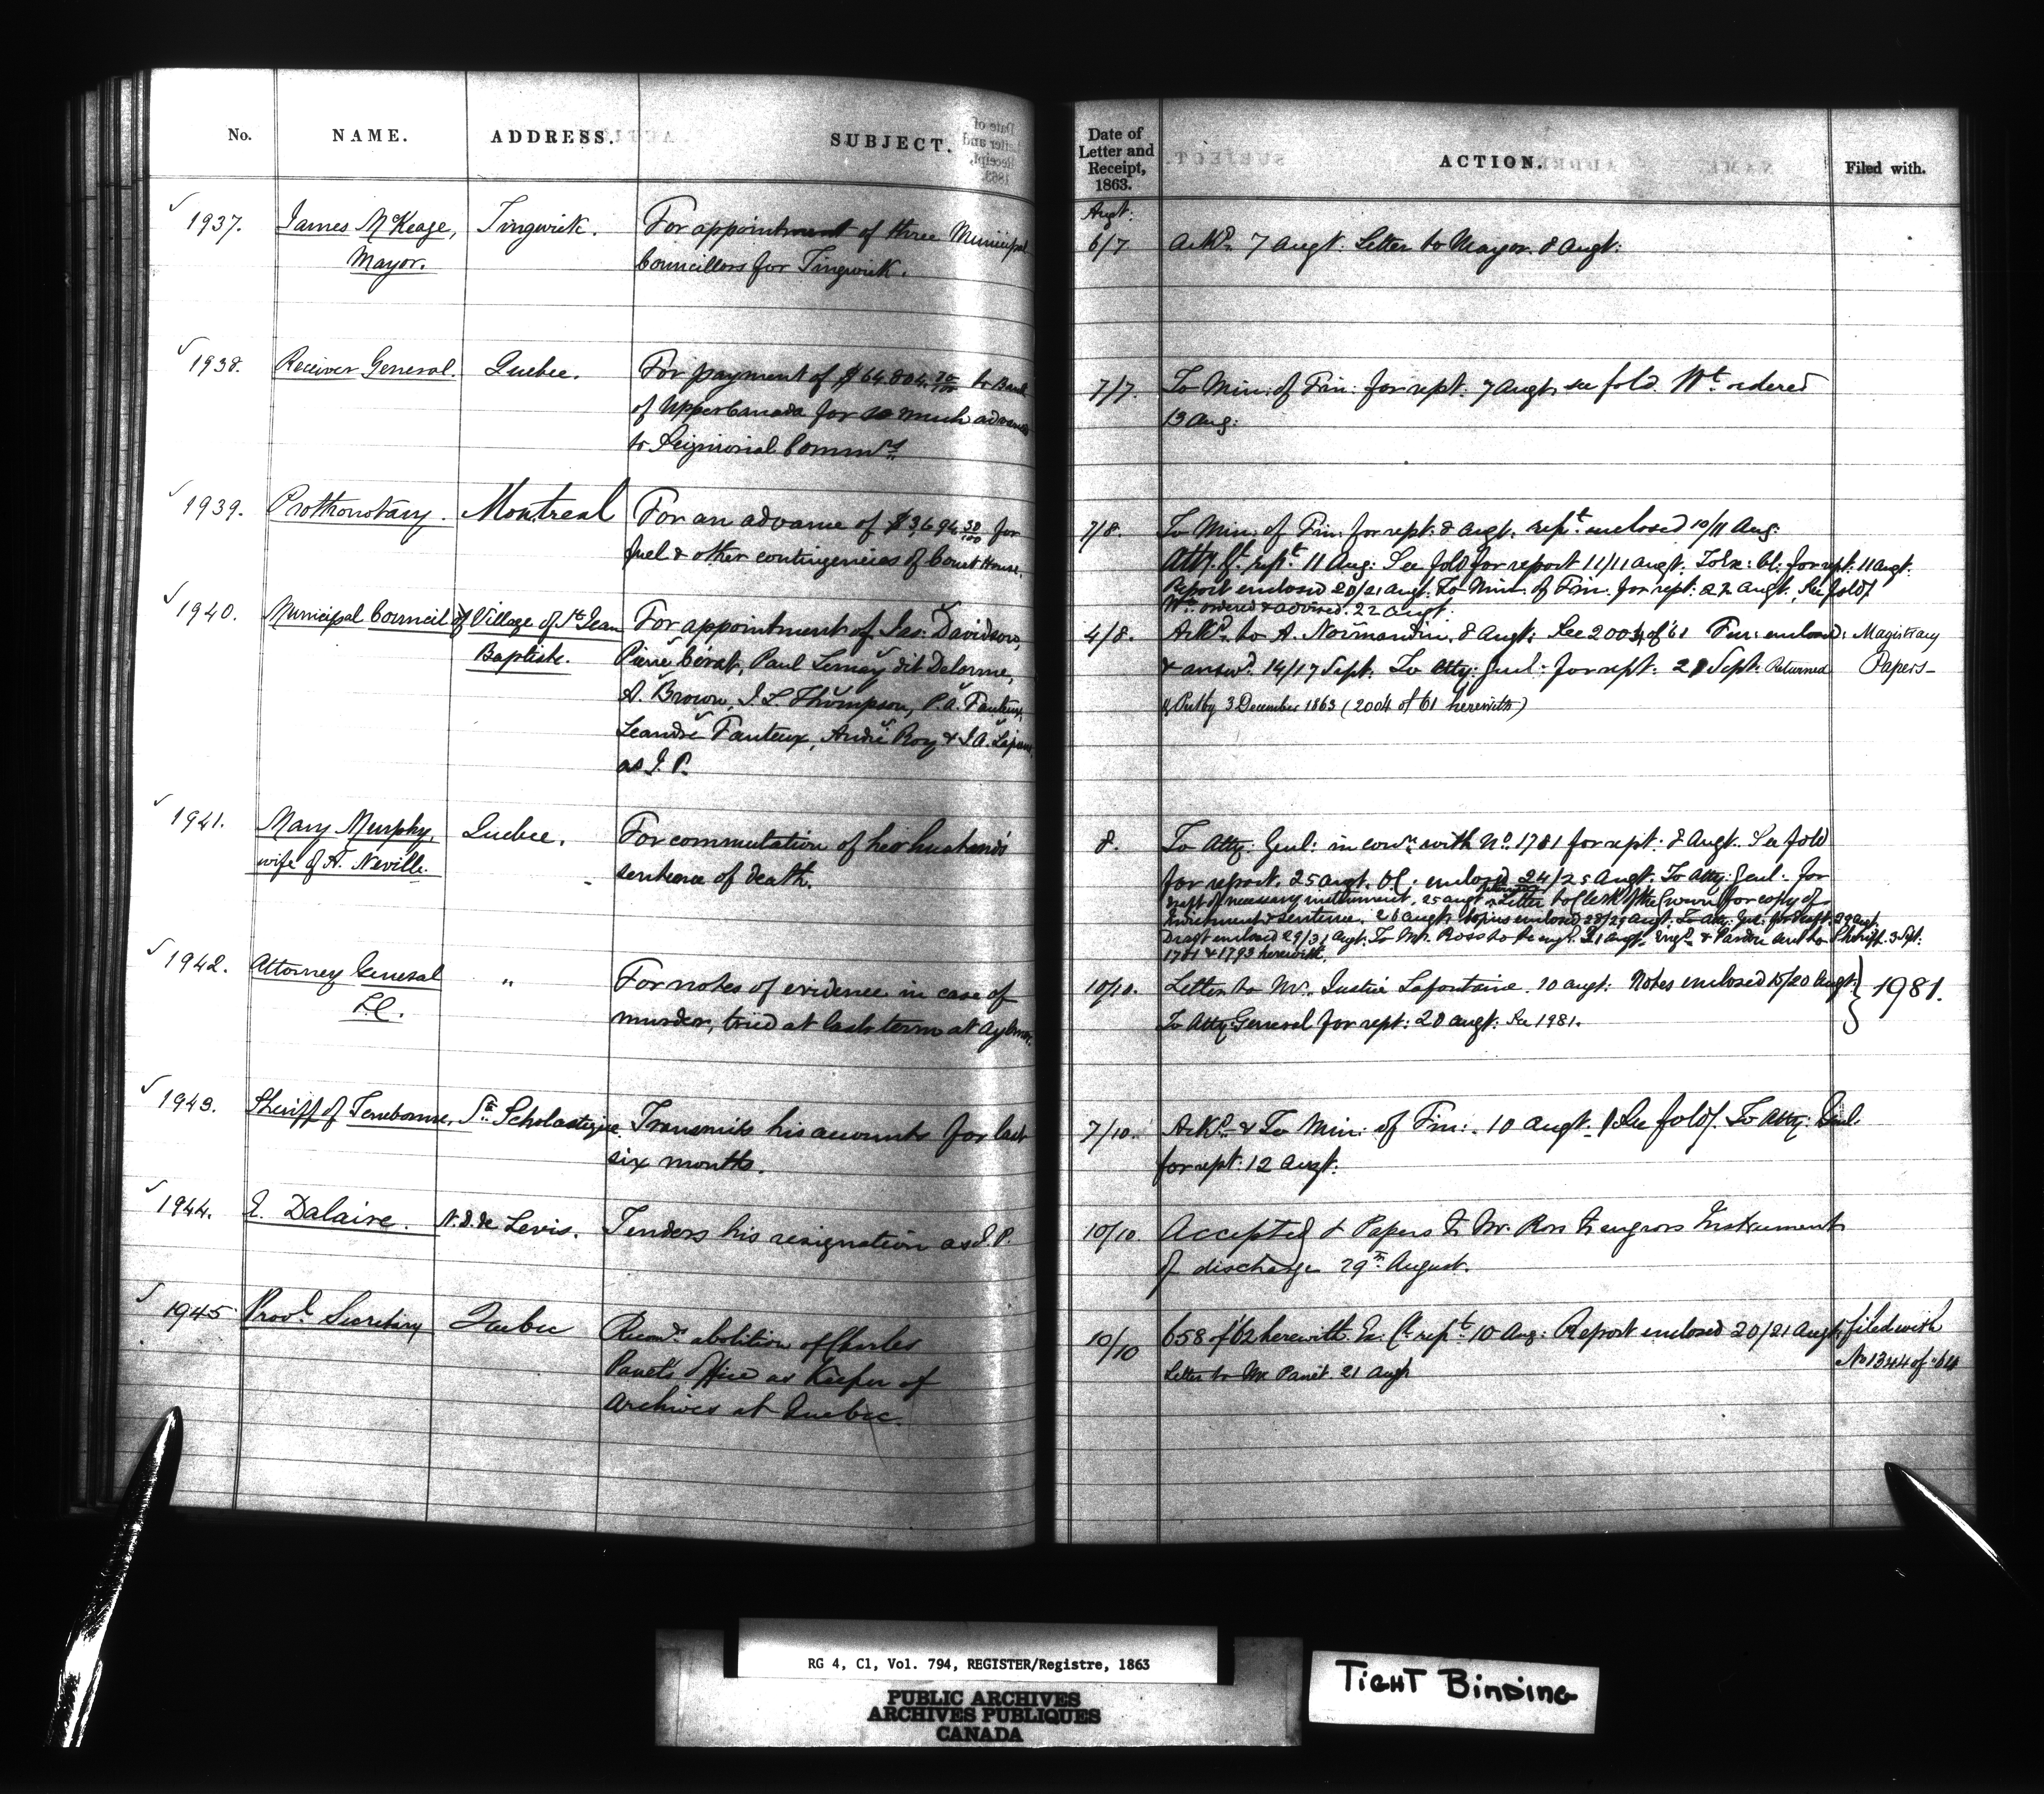 No. NAME. ADDRESS. SUBJECT.
1937. James McKeage, Tingwick. For appointment of three Municipal
Mayor. Councillors for Tingwick.
1938. Receiver General. Quebec. For payment of $64804.70/100 to Bank
of Upper Canada for so much advanced
to Seigniorial Commrs
1939. Prothonotary. Montreal For an advance of $3,694.30/100 for
fuel & other contingencies of Court House.
1940. Municipal Council of Village of St Jean For appointment of Jas. Davidson,
Baptiste. Pierre Cérat, Paul Lemay dit Delorme,
A. Brown, J. L. Thompson, P. A. Fauteux,
Leandre Fauteux, André Roy & J. A.
as J. P.
1941. Mary Murphy, Quebec. For commutation of her husband's
wife of A. Neville. sentence of death.
1942. Attorney General " For notes of evidence in case of
L.C. murder, tried at last term at Aylmer.
1943. Sheriff of Terrebonne, Ste Scholastique. Transmits his accounts for last
six months.
1944. E. Dalaire. N. D. de Levis. Tenders his resignation as J. P.
1945 Provl. Secretary Quebec Recomds. abolition of Charles
Panet's Office as Keeper of
Archives at Quebec.
Date of
Letter and
Receipt,
1863.
ACTION. Filed with.
Augt:
6/7 Ackd. 7 Augt. Letter to Mayor. 8 Augt:
7/7. To Min: of Fin: for rept. 7 Augt, see fold. Wt. ordered
13 Aug:
7/8. To Min: of Fin: for rept: 8 Augt. rept. enclosed 10/11 Aug:
Atty. Gl. rept. 11 Aug: See fold for report 11/11 Augt. To Ex: Cl: for rept: 11 Augt.
Report enclosed 20/21 Augt. To Min: of Fin: for rept: 22 Augt. See fold
Wt. ordered & advised. 22 Augt.
4/8. Ackd. to A. Normandin. 8 Augt: See 2004 of '61 Fur: enclosed: Magistracy
& answd. 14/17 Sept. To Atty: Genl: for rept: 21 Sept. Returned Papers-
3 December 1863 (2004 of 61 herewith)
8. To Atty: Genl: in conn. with No. 1781 for rept: 8 Augt. See fold
for report. 25 Augt. OC. enclosed 24/25 Augt. To Atty: Genl: for
draft of necessary instrument. 25 Augt Letter to Clerk of the Crown for copy of
Indictment & sentence. 26 Augt. Copies enclosed 28/29 Augt. To Atty. Genl. for draft. 29 Augt.
Draft enclosed 29/31 Augt. To Mr. Ross to be engd. 31 Augt. Engd. & Pardon sent to Sheriff. 3 Sept.
1781 & 1793 herewith.
10/10. Letter to Mr. Justice Lafontaine. 10 Augt: Notes enclosed 15/20 Augt: } 1981.
To Atty: General for rept: 20 Augt. See 1981.
7/10. Ackd. & To Min: of Fin: . 10 Augt. See fold. To Atty: Genl.
for rept: 12 Augt:
10/10 Accepted & Papers to Mr. Ross to engross Instrument
of discharge 29th August.
10/10 658 of '62 herewith. Ex. Cl. rept. 10 Aug: Report enclosed 20/21 Augt. filed with
Letter to Mr Panet. 21 Augt No 1344 of '64
RG 4, C1, Vol. 794, REGISTER/Registre, 1863
PUBLIC ARCHIVES
ARCHIVES PUBLIQUES
CANADA
TIGHT BINDING